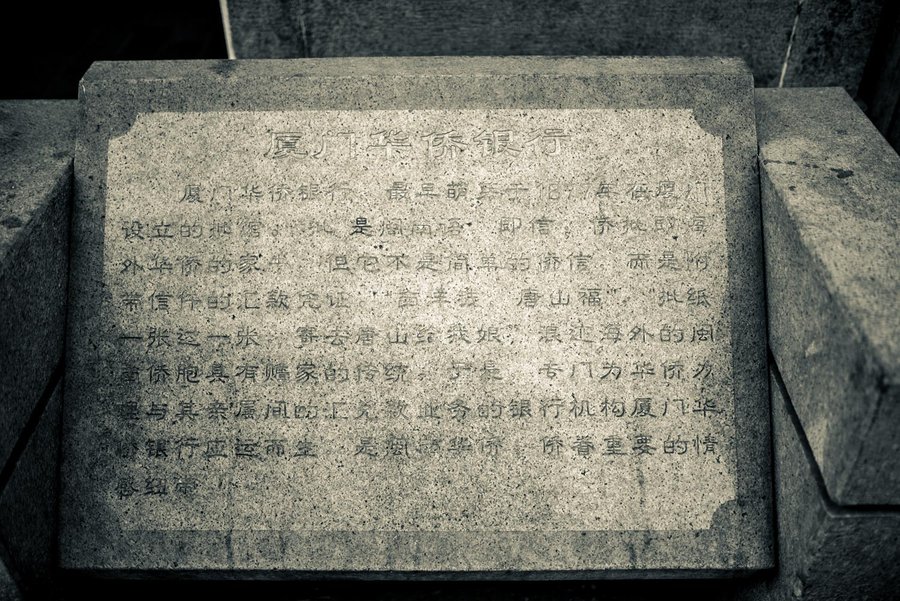 厦门华侨银行
厦门华侨银行，最早萌芽于1877年在厦门
设立的批馆，“批”是闽南语，即信，侨批即海
外华侨的家书，但它不是简单的侨信，而是附
带信件的汇款凭证。 “唐山福”，“批纸
一张过一张，寄去唐山给我娘”，浪迹海外的闽
南侨胞具有赡家的传统，于是，专门为华侨办
理与其亲属间的汇兑款业务的银行机构厦门华
侨银行应运而生，是 华侨、侨眷重要的情
感纽带。